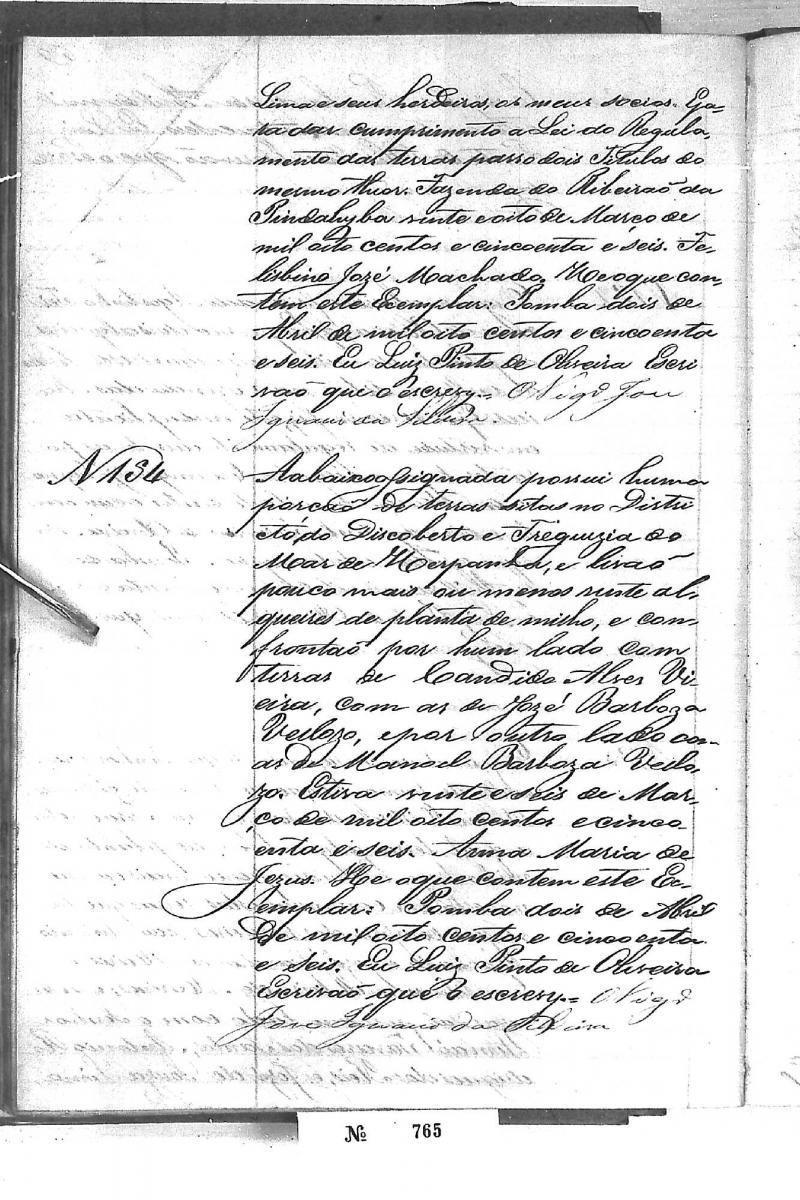 Lima e seus herdeiros, os meus socios. E pa-
ra dar cumprimento a Lei do Regula-
mento das terras passo dois Titulos do
mesmo thior. Fazenda do Ribeiraõ da
Pindahyba vinte e oito de Março de
mil oito centos e cincoenta e seis. Fe-
lisbino Jozé Machado. He o que con-
tem este Exemplar: Pomba dois de
Abril de mil oito centos e cincoenta
e seis. Eu Luiz Pinto de Oliveira Escri
vaõ que o escrevy = O Vigrº Jose
Ignacio da Silveira.
N 134
A abaixo assignada possui huma
porcaõ de terras sitas no Distri
cto do Discoberto e Freguizia do
Mar de Herpanha, e livaõ
pouco mais ou menos vinte al-
queires de planta de milho, e con-
frontaõ por hum lado com
terras de Candido Alves Vi-
eira, com as de Jozé Barboza
Vellozo, e por outro lado com
as de Manoel Barboza Vello-
zo. Estiva vinte e seis de Mar-
ço de mil oito centos e cinco-
enta e seis. Anna Maria de
Jezus. He o que contem este Ex-
emplar: Pomba dois de Abril
de mil oito centos e cincoenta
e seis. Eu Luiz Pinto de Oliveira
Escrivaõ que o escrevy = O Vigrº
Jose Ignacio da Silveira
Nº 765